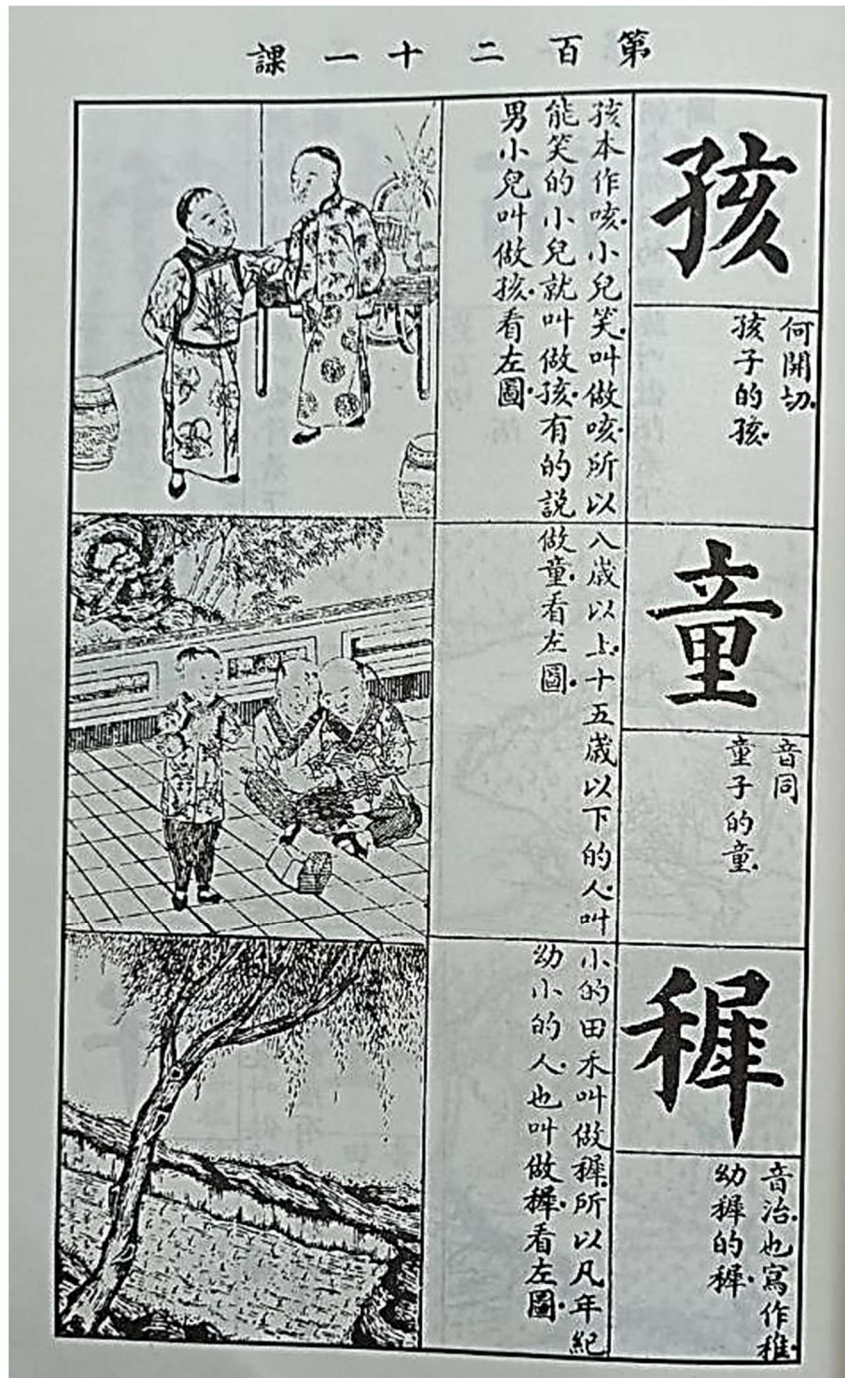 第百二十一課
孩
何開切
孩子的孩
孩本作咳小兒笑叫做咳所以
能笑的小兒就叫做孩有的說
男小兒叫做孩看左圖
童
音同
童子的童
八歲以上十五歲以下的人叫
做童看左圖
稺
音治也寫作稚
幼稺的稺
小的田禾叫做稺所以凡年紀
幼小的人也叫做稺看左圖